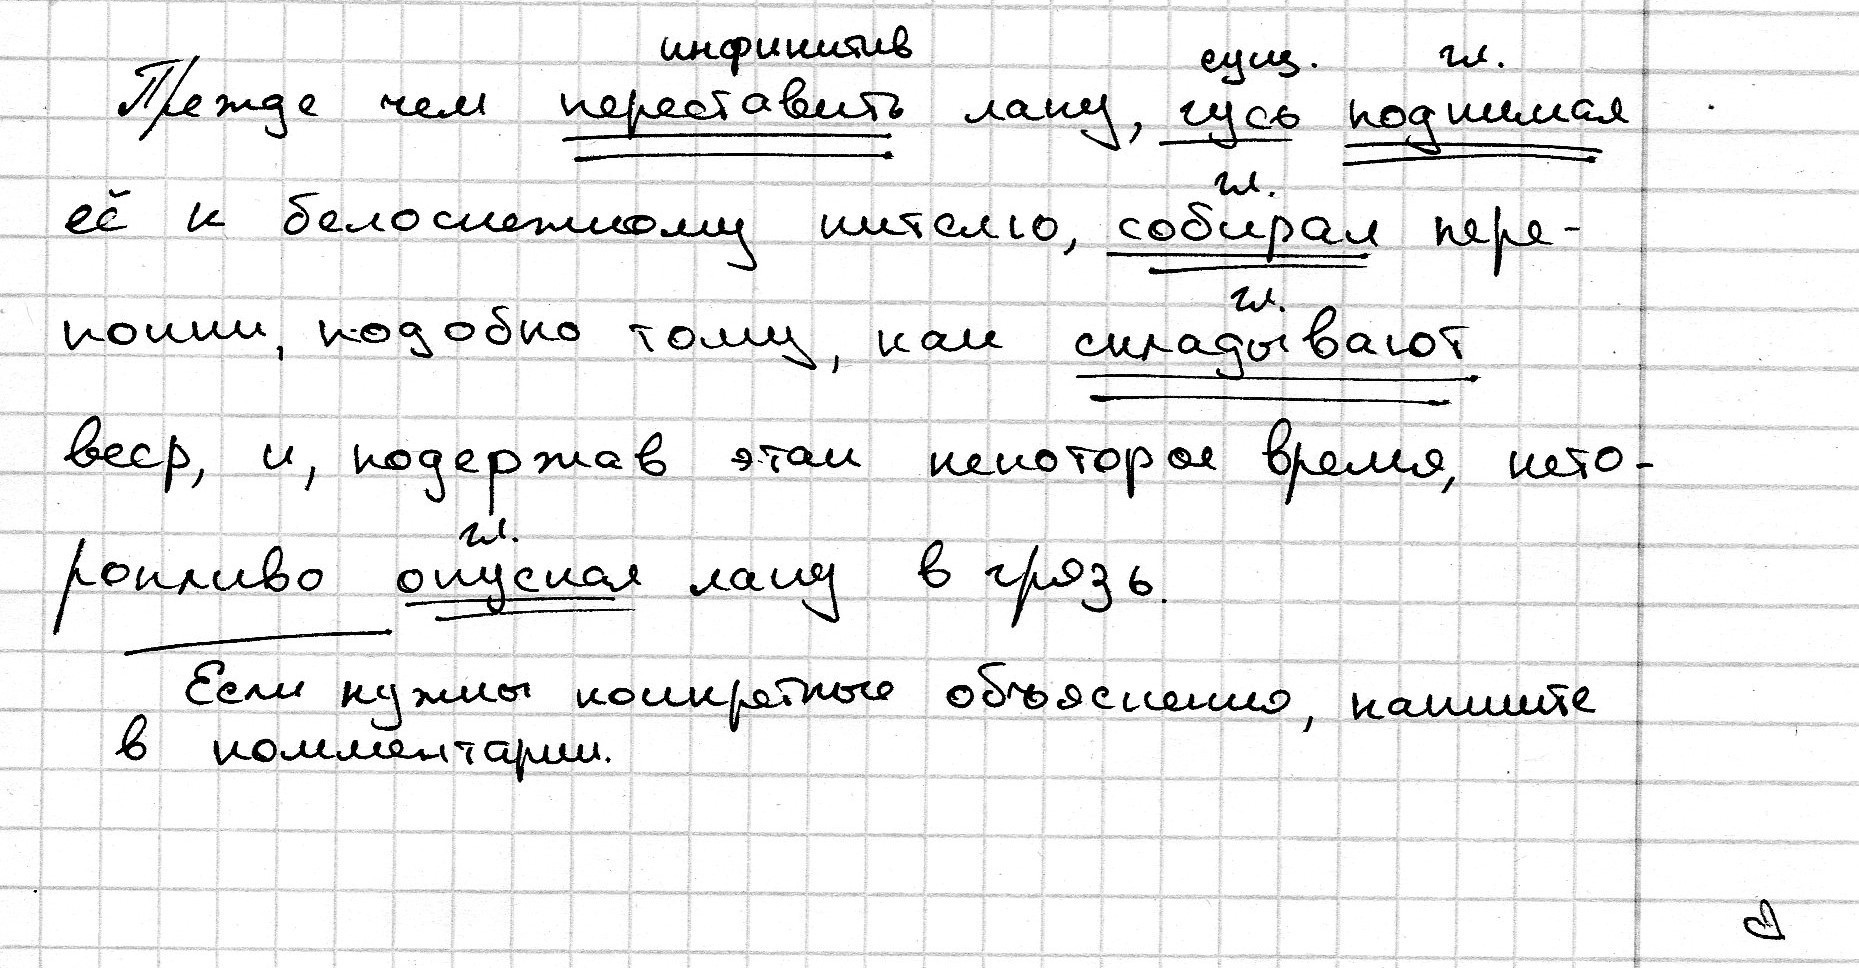 инфинитив сущ. гл.
Прежде чем переставить лапу, гусь поднимал
гл.
её к белоснежному кителю, собирал пере-
гл.
понки, подобно тому, как складывают
веер, и, подержав этак некоторое время, нето-
гл.
ропливо опускал лапу в грязь.
Если нужны конкретные объяснения, напишите
в комментарии.